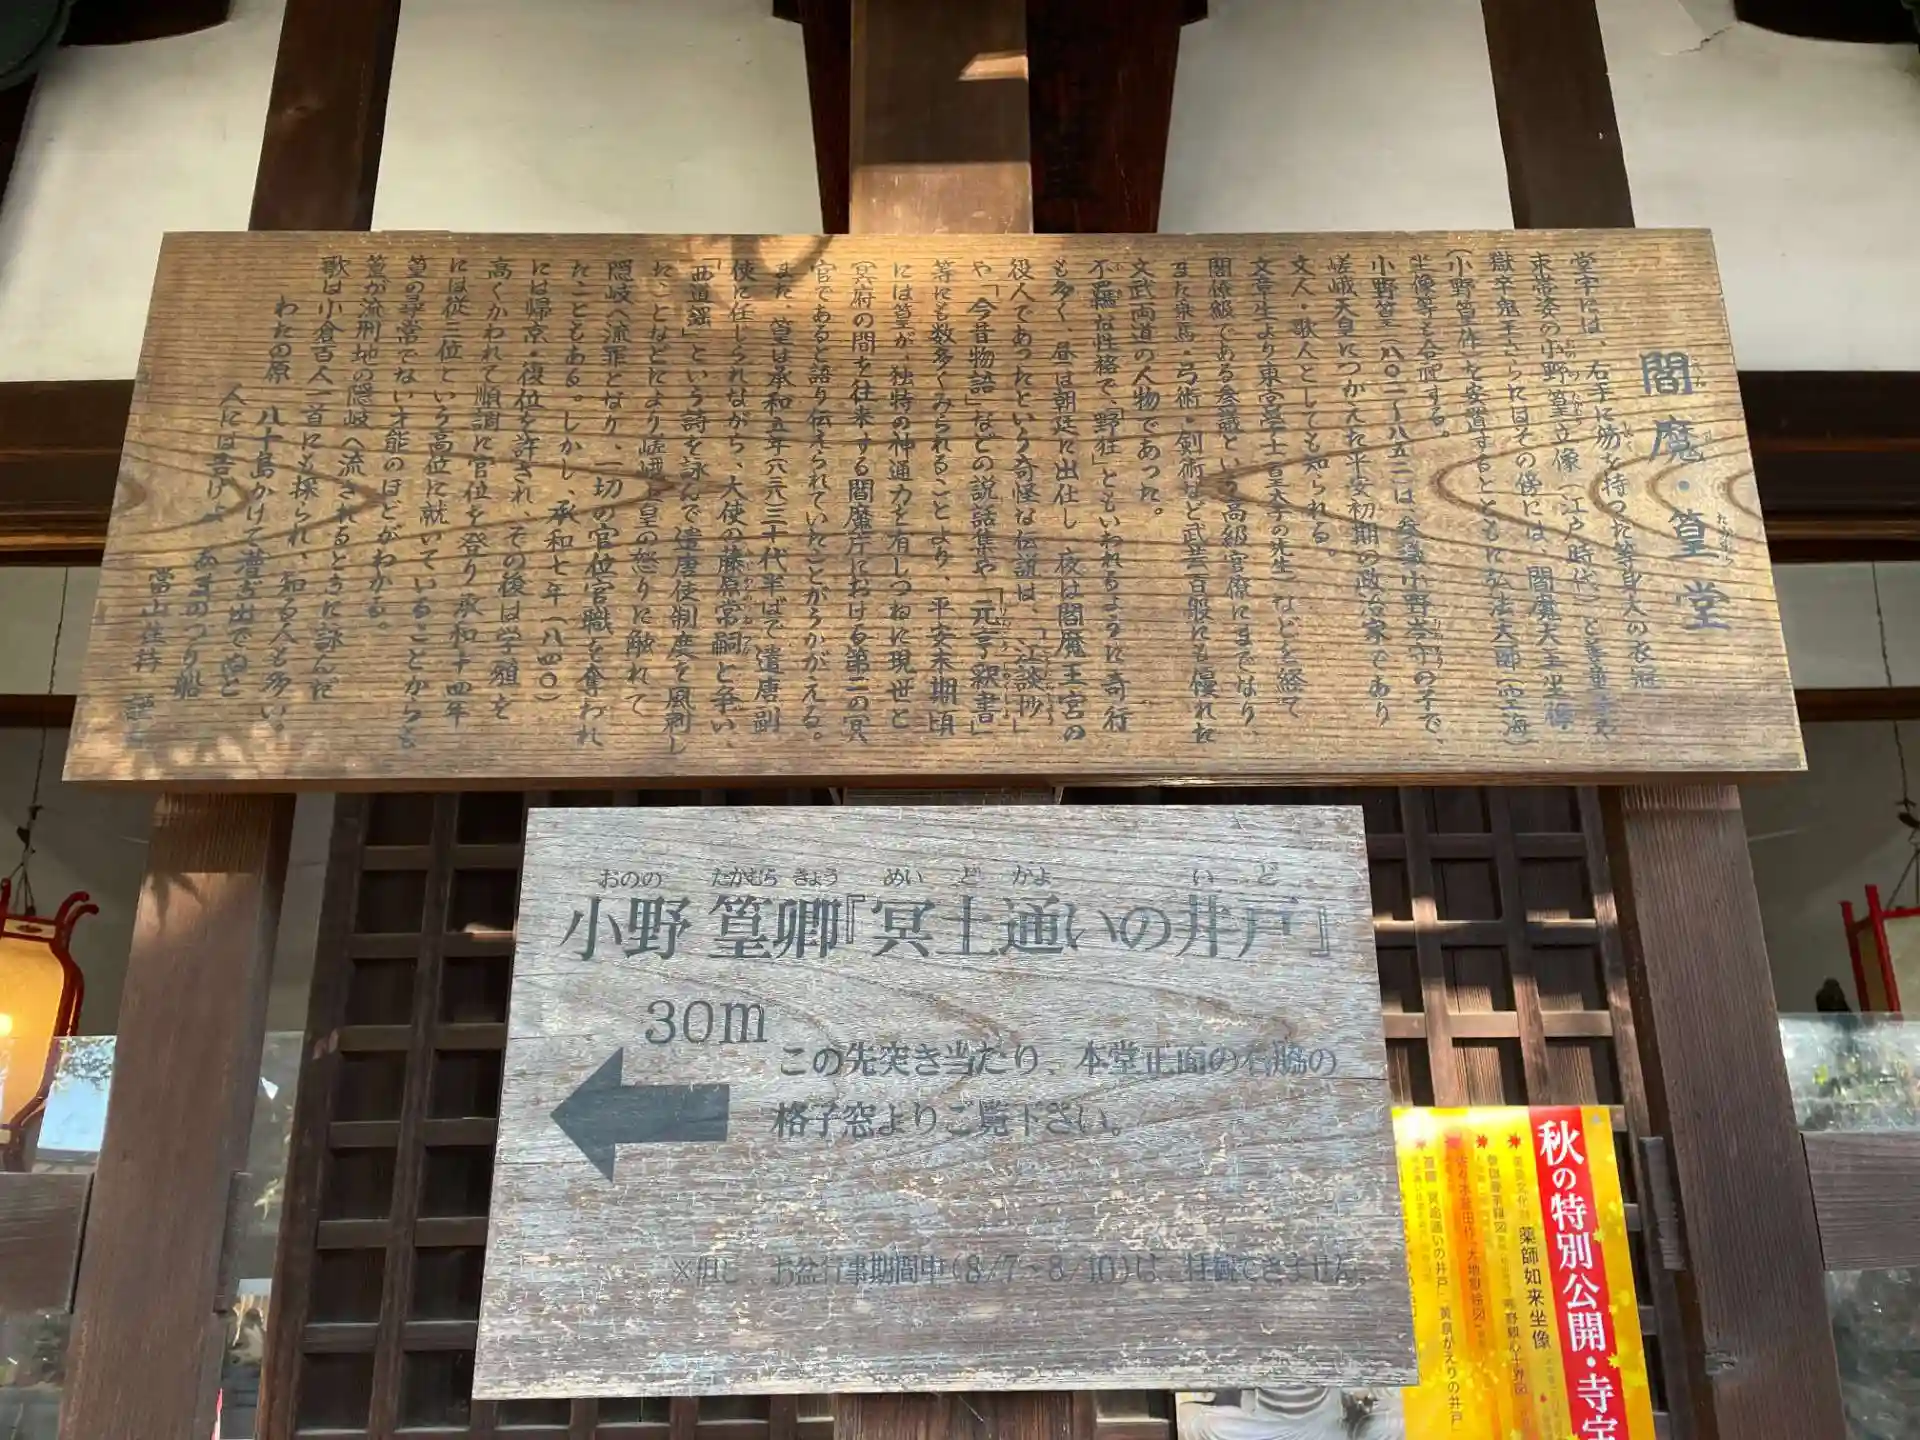 閻魔・篁堂
堂宇には、右手に笏を持った等身大の衣冠
束帯姿の小野篁立像（江戸時代）と善童子や
獄卒鬼王さらにはその傍には、閻魔大王坐像
（小野篁作）を安置するとともに弘法大師（空海）
坐像等も合祀する。
小野篁（八〇二〜八五二）は参議小野岑守の子で、
嵯峨天皇につかえた平安初期の政治家であり
文人・歌人としても知られる。
文章生より東宮学士（皇太子の先生）などを経て
閣僚級である参議という高級官僚にまでなり、
また乗馬・弓術・剣術など武芸百般にも優れた
文武両道の人物であった。
不羈な性格で、「野狂」ともいわれるように奇行
も多く、昼は朝廷に出仕し、夜は閻魔王宮の
役人であったという奇怪な伝説は、「江談抄」
や「今昔物語」などの説話集や「元亨釈書」
等にも数多くみられることより、平安末期頃
には篁が、独特の神通力を有しつねに現世と
冥府の間を往来する閻魔庁における第二の冥
官であると語り伝えられていたことがうかがえる。
また、篁は承和五年（八三八）三十代半ばで遣唐副
使に任じられながら、大使の藤原常嗣と争い、
「西道謡」という詩を詠んで遣唐使制度を風刺し
たことなどにより嵯峨上皇の怒りに触れて
隠岐へ流罪となり、一切の官位官職を奪われ
たこともある。しかし、承和七年（八四〇）
には帰京・復位を許され、その後は学殖を
高くかわれて順調に官位を登り承和十四年
には従三位という高位に就いていることからも
篁の尋常でない才能のほどがわかる。
篁が流刑地の隠岐へ流されるときに詠んだ
歌は小倉百人一首にも採られ、知る人も多い。
わたの原 八十島かけて漕ぎ出でぬと
人には告げよ あまのつり船
當山住持 謹
おのの たかむら きょう めい ど かよ い ど
小野 篁卿『冥土通いの井戸』
30m
この先突き当たり、本堂正面の右脇の
格子窓よりご覧下さい。
※但し お盆行事期間中（8/7～8/10）は、拝観できません。
秋の特別公開・寺宝
薬師如来坐像